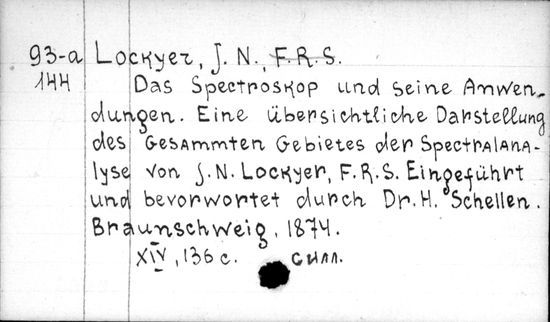 93-a Lockyer, J. N., F.R.S.
144 Das Spectroskop und seine Anwen-
dungen. Eine übersichtliche Darstellung
des gesammten Gebietes der Spectralana-
lyse von J. N. Lockyer, F.R.S. Eingeführt
und bevorwortet durch Dr. H. Schellen.
Braunschweig, 1874.
XIV, 136 с. силл.